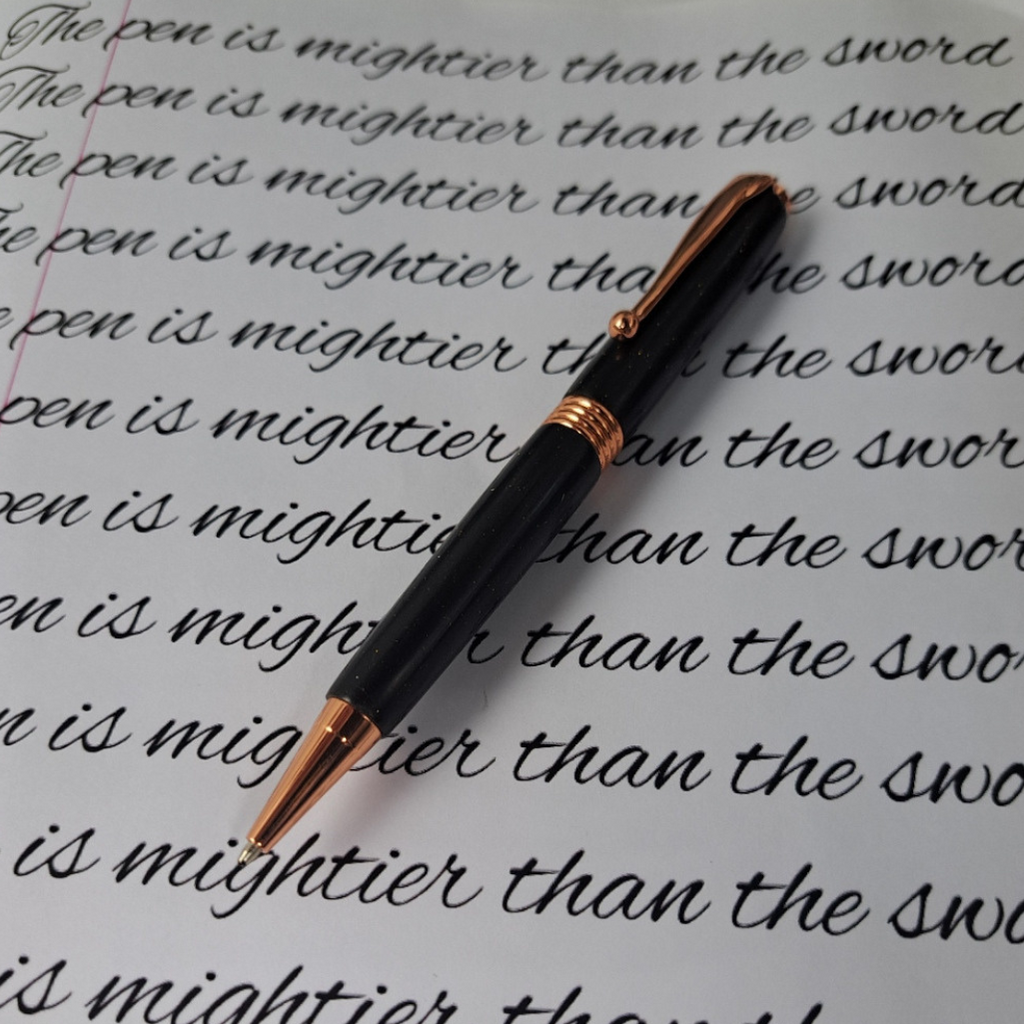 The pen is mightier than the sword
The pen is mightier than the sword
The pen is mightier than e sword
he pen is mightier tha he sword
e pen is mightier th the sword
pen is mightier an the swor
pen is mightie than the swor
en is migh r than the swo
n is mig tier than the swo
is mightier than the swo
is mightier than th